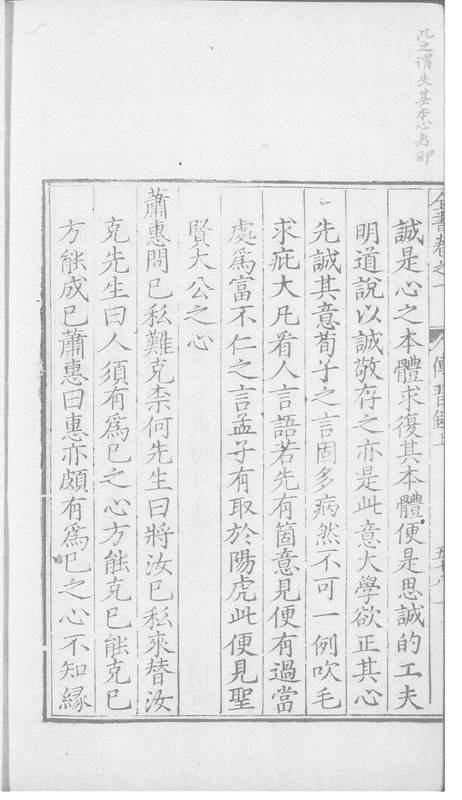 此之謂失其本心者耶
全書卷之一 傳習錄上 五十八
誠是心之本體求復其本體便是思誠的工夫
明道說以誠敬存之亦是此意大學欲正其心
先誠其意荀子之言固多病然不可一例吹毛
求疵大凡看人言語若先有箇意見便有過當
處爲富不仁之言孟子有取於陽虎此便見聖
賢大公之心
蕭惠問巳私難克柰何先生曰將汝巳私來替汝
克先生曰人須有爲巳之心方能克巳能克巳
方能成巳蕭惠曰惠亦頗有爲巳之心不知緣